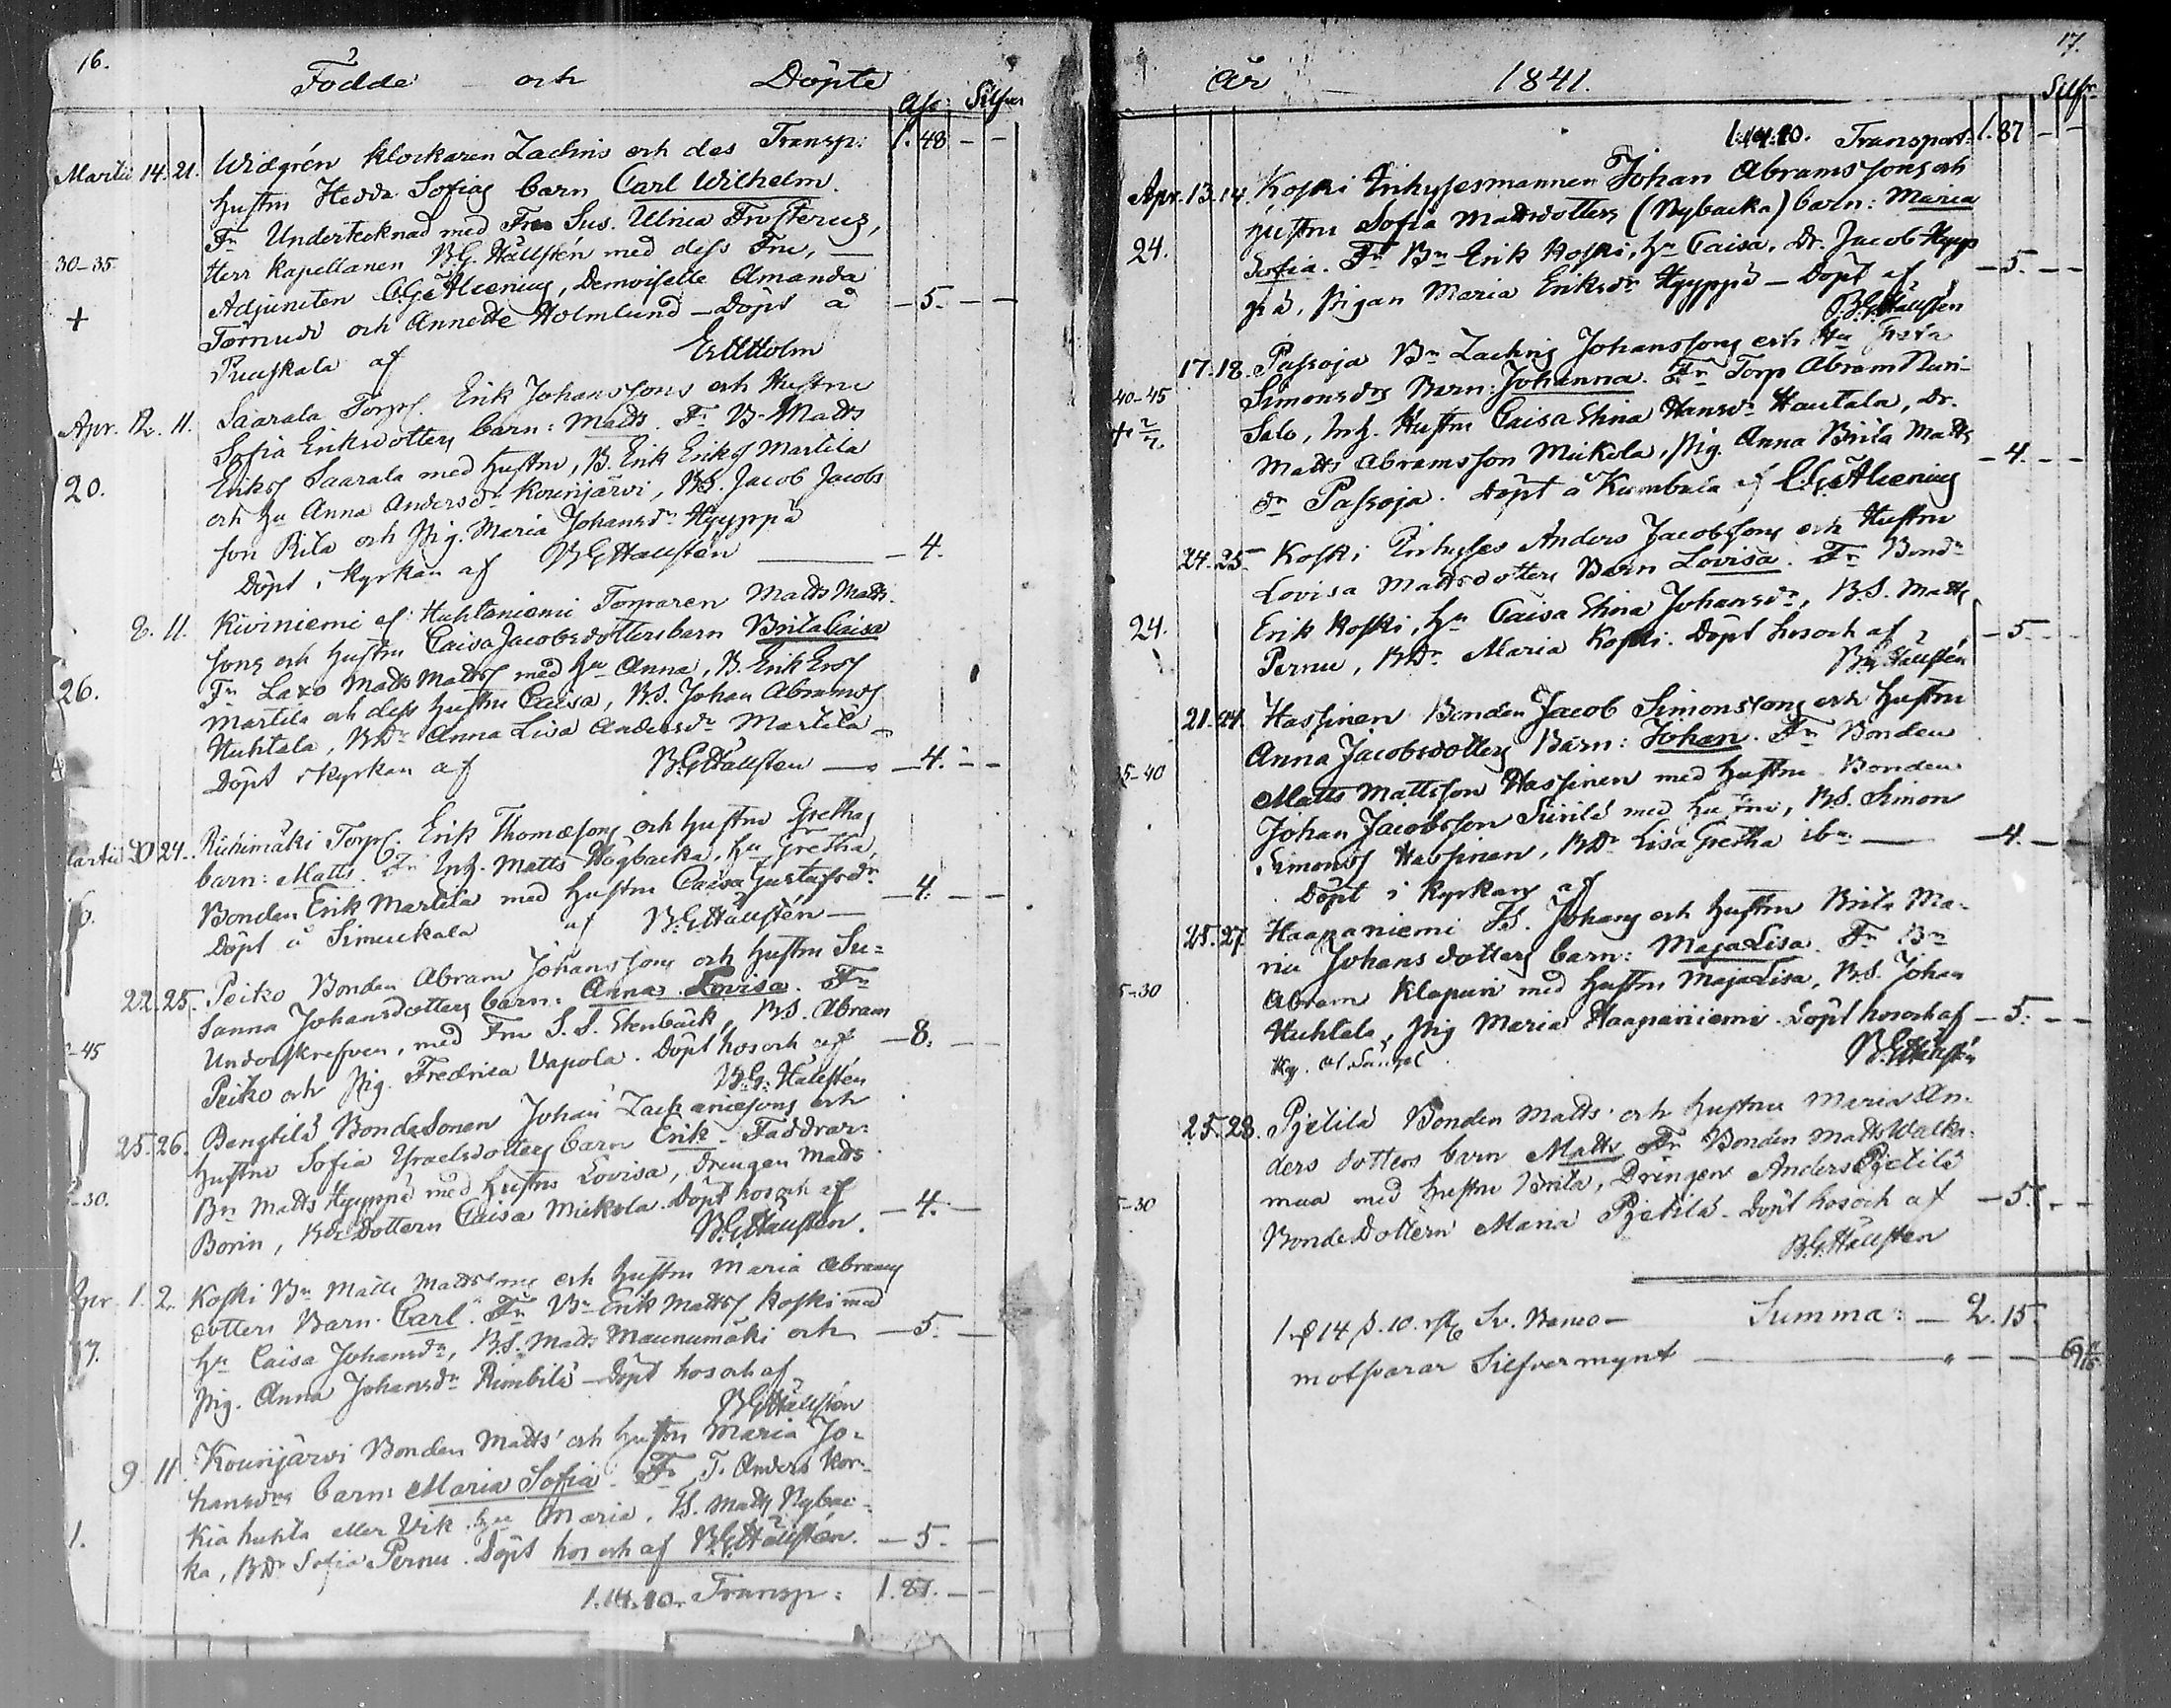 16.
Födde och Döpte
Silfver
Martii 14. 21. Widgrén klockaren Zachris och des Transp: 1. 48 - -
hustru Hedda Sofias barn Carl Wilhelm.
Fr Undertecknad med Fru Sus. Ulrica Frosterus,
30-35 Herr Kapellanen B.G. Hällstén med dess Fru,
Adjuncten C.G. Alcenius, Demoiselle Amanda
+ Törnudd och Annette Holmlund - Döpt å - 5. - -
Puuskala af
Apr. 12. 11. Saarala Torp. Erik Johanssons och Hustru
Sofia Eriksdotters barn: Matts. Fr B. Matts
20. Eriks Saarala med hustru, B. Erik Eriks Martila
och hu Anna Andersdr Kounjärvi, BS. Jacob Jacobs
son Rita och Pig. Maria Johansdr Hyyppä
Döpt i kyrkan af BGHällstén - 4.
8. 11. Kiviniemi af Huhtaniemi Torparen Matts Matts
sons och hustru Caisa Jacobsdotters barn Brita Caisa
26. Fr Laxo Matts Matts med hu Anna, B. Erik Ers
Martila och dess hustru Caisa, BS. Johan Abrams
Huhtala, BDr Anna Lisa Andersdr Martila
Döpt i kyrkan af B.G.Hällsten - 4. - -
20 24. Riihimäki Torp. Erik Thomæsons och hustru Grethas
barn: Matts. Fr Inh. Matts Högbacka, hu Gretha,
Bonden Erik Martila med hustru Caisa Gustafsdr - 4. - -
Döpt å Simuckala af B.G.Hällstén
22. 25. Peiko Bonden Abram Johanssons och hustru Su-
sanna Johansdotters barn: Anna Lovisa. Fr
-45 Underskrefven, med Fru S. S. Stenbäck, BS. Abram - 8. -
Peiko och Pig. Fredrica Vapola. Döpt hos och af
B.G. Hällstén
25. 26. Bengtilä Bonde Sonen Johan Zachariæsons och
hustru Sofia Israelsdotters barn Erik. Faddrar:
-30. Bn Matts Hyyppä med hustru Lovisa, drengen Matts
Borin, Bde Dottern Caisa Mickola. Döpt hos och af - 4. -
B.G.Hällstén.
Apr. 1. 2. Koski Bn Matts Mattssons och hustru Maria Abrams
dotters Barn. Carl. Fr Bn Erik Matts Koski med
7. hu Caisa Johansdr, BS. Matts Maunumäki och - 5. -
Pig. Anna Johansdr Rimbilä - Döpt hos och af
BGHällstén
9. 11. Kounjärvi Bonden Matts' och hustru Maria Jo-
hansdrs barn: Maria Sofia. Fr T. Anders Kor-
1. kiahuhta eller Vik hu Maria, TS. Matts Nybac-
ka, BDr Sofia Pernu. Döpt hos och af B.G.Hällstén. - 5. -
1.14.10. Transp: 1. 87. - -
17.
år 1841.
Silfr
1.14.10. Transport: 1. 87 - -
Apr. 13. 14. Koski Inhysesmannen Johan Abramssons och
hustru Sofia Mattsdotters (Nybacka) barn: Maria
24. Sofia. Fr Bn Erik Koski, hu Caisa, Dr. Jacob Hyyp
pä, Pigan Maria Eriksdr Hyyppä - Döpt af - 5. - -
B.G.Hällsten
17. 18. Passoja Bn Zachris Johanssons och Hu Greta
40-45 Simonsdrs Barn: Johanna. Fr Torp Abram Nuri-
Salo, Inh. Hustru Caisa Stina Hansdr Hautala, Dr.
Matts Abramsson Mickola, Pig. Anna Brita Matts - 4. - -
dr Passoja. Döpt å Kumbula af C.G.Alcenius
24. 25. Koski Inhyses Anders Jacobssons och Hustru
Lovisa Mattsdotters Barn Lovisa. Fr Bond
24. Erik Koski, hu Caisa Stina Johansdr, B.S. Matts
Pernu, BDr Maria Koski. Döpt hos och af - 5. - -
B.G.Hällstén
21. 24. Hassinen Bonden Jacob Simonssons och hustru
Anna Jacobsdotters Barn: Johan. Fr Bonden
35-40 Matts Mattsson Hassinen med hustru Bonden
Johan Jacobsson Siirilä med hustru, BS. Simon
Simons Hassinen, BDr Lisa Gretha ibm - 4. - -
Döpt i kyrkan af
25. 27. Haapaniemi TS. Johans och hustru Brita Ma-
ria Johansdotters barn: Maja Lisa. Fr Bn
5-30 Abram Klapuri med hustru Maja Lisa, BS. Johan
Huhtala, Pig Maria Haapaniemi. Döpt hos och af - 5. - -
B.G.Hällstén
25. 28. Pjetilä Bonden Matts' och hustru Maria An-
ders dotters barn Matts. Fr Bonden Matts Walki-
maa med hustru Brita, Drengen Anders Pjetilä
5-30 Bonde Dottern Maria Pjetilä. Döpt hos och af - 5. - -
B.G.Hällsten
1. 14 s. 10. Sv. Banco - Summa: - 2. 15.
motsvarar Silfvermynt